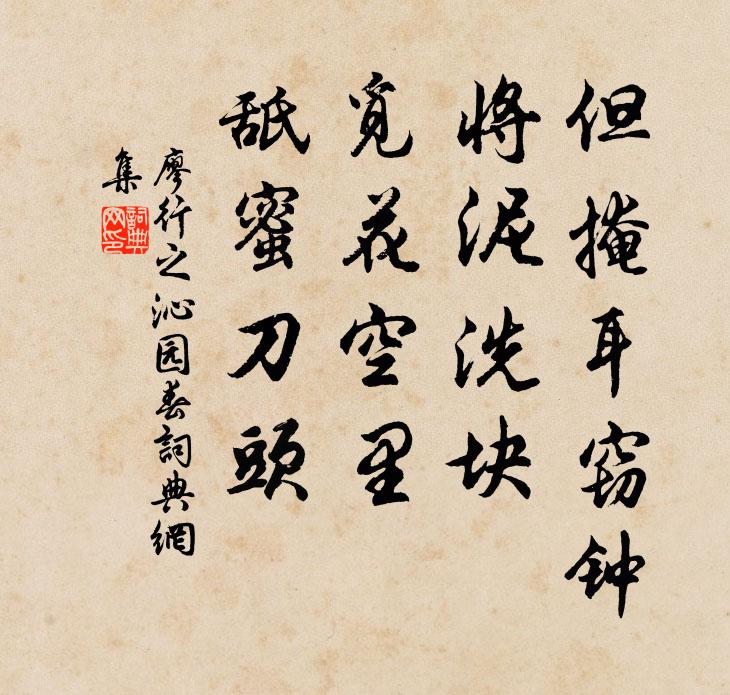 但掩耳窃钟
将泥洗块
觅花空里
舐蜜刀頭
廖行之沁园春詞典網
集
詞典
网印